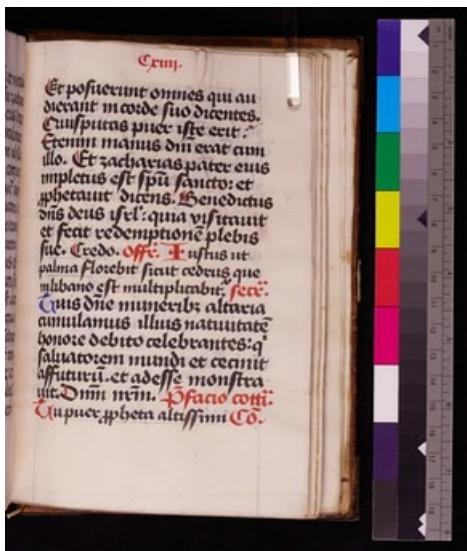 Cxiiij.
Et posuerunt omnes qui au
dierant in corde suo dicentes.
Quis putas puer iste erit?
Etenim manus dñi erat cum
illo. Et zacharias pater eius
impletus est spũ sancto: et
ꝓphetauit dicens. Benedictus
dñs deus isrl̃: quia visitauit
et fecit redemptionẽ plebis
sue. Credo. Offr̃. Iustus ut
palma florebit sicut cedrus que
in libano est multiplicabit̃. secr̃.
Tuis dñe muneribꝫ altaria
cumulamus illius natiuitatẽ
honore debito celebrantes: q̃
saluatorem mundi et cecinit
affuturũ. et adesse monstra
uit. Dnm nrm̃. P̃facio cotti.
Tu puer ꝓpheta altissimi Cõ.